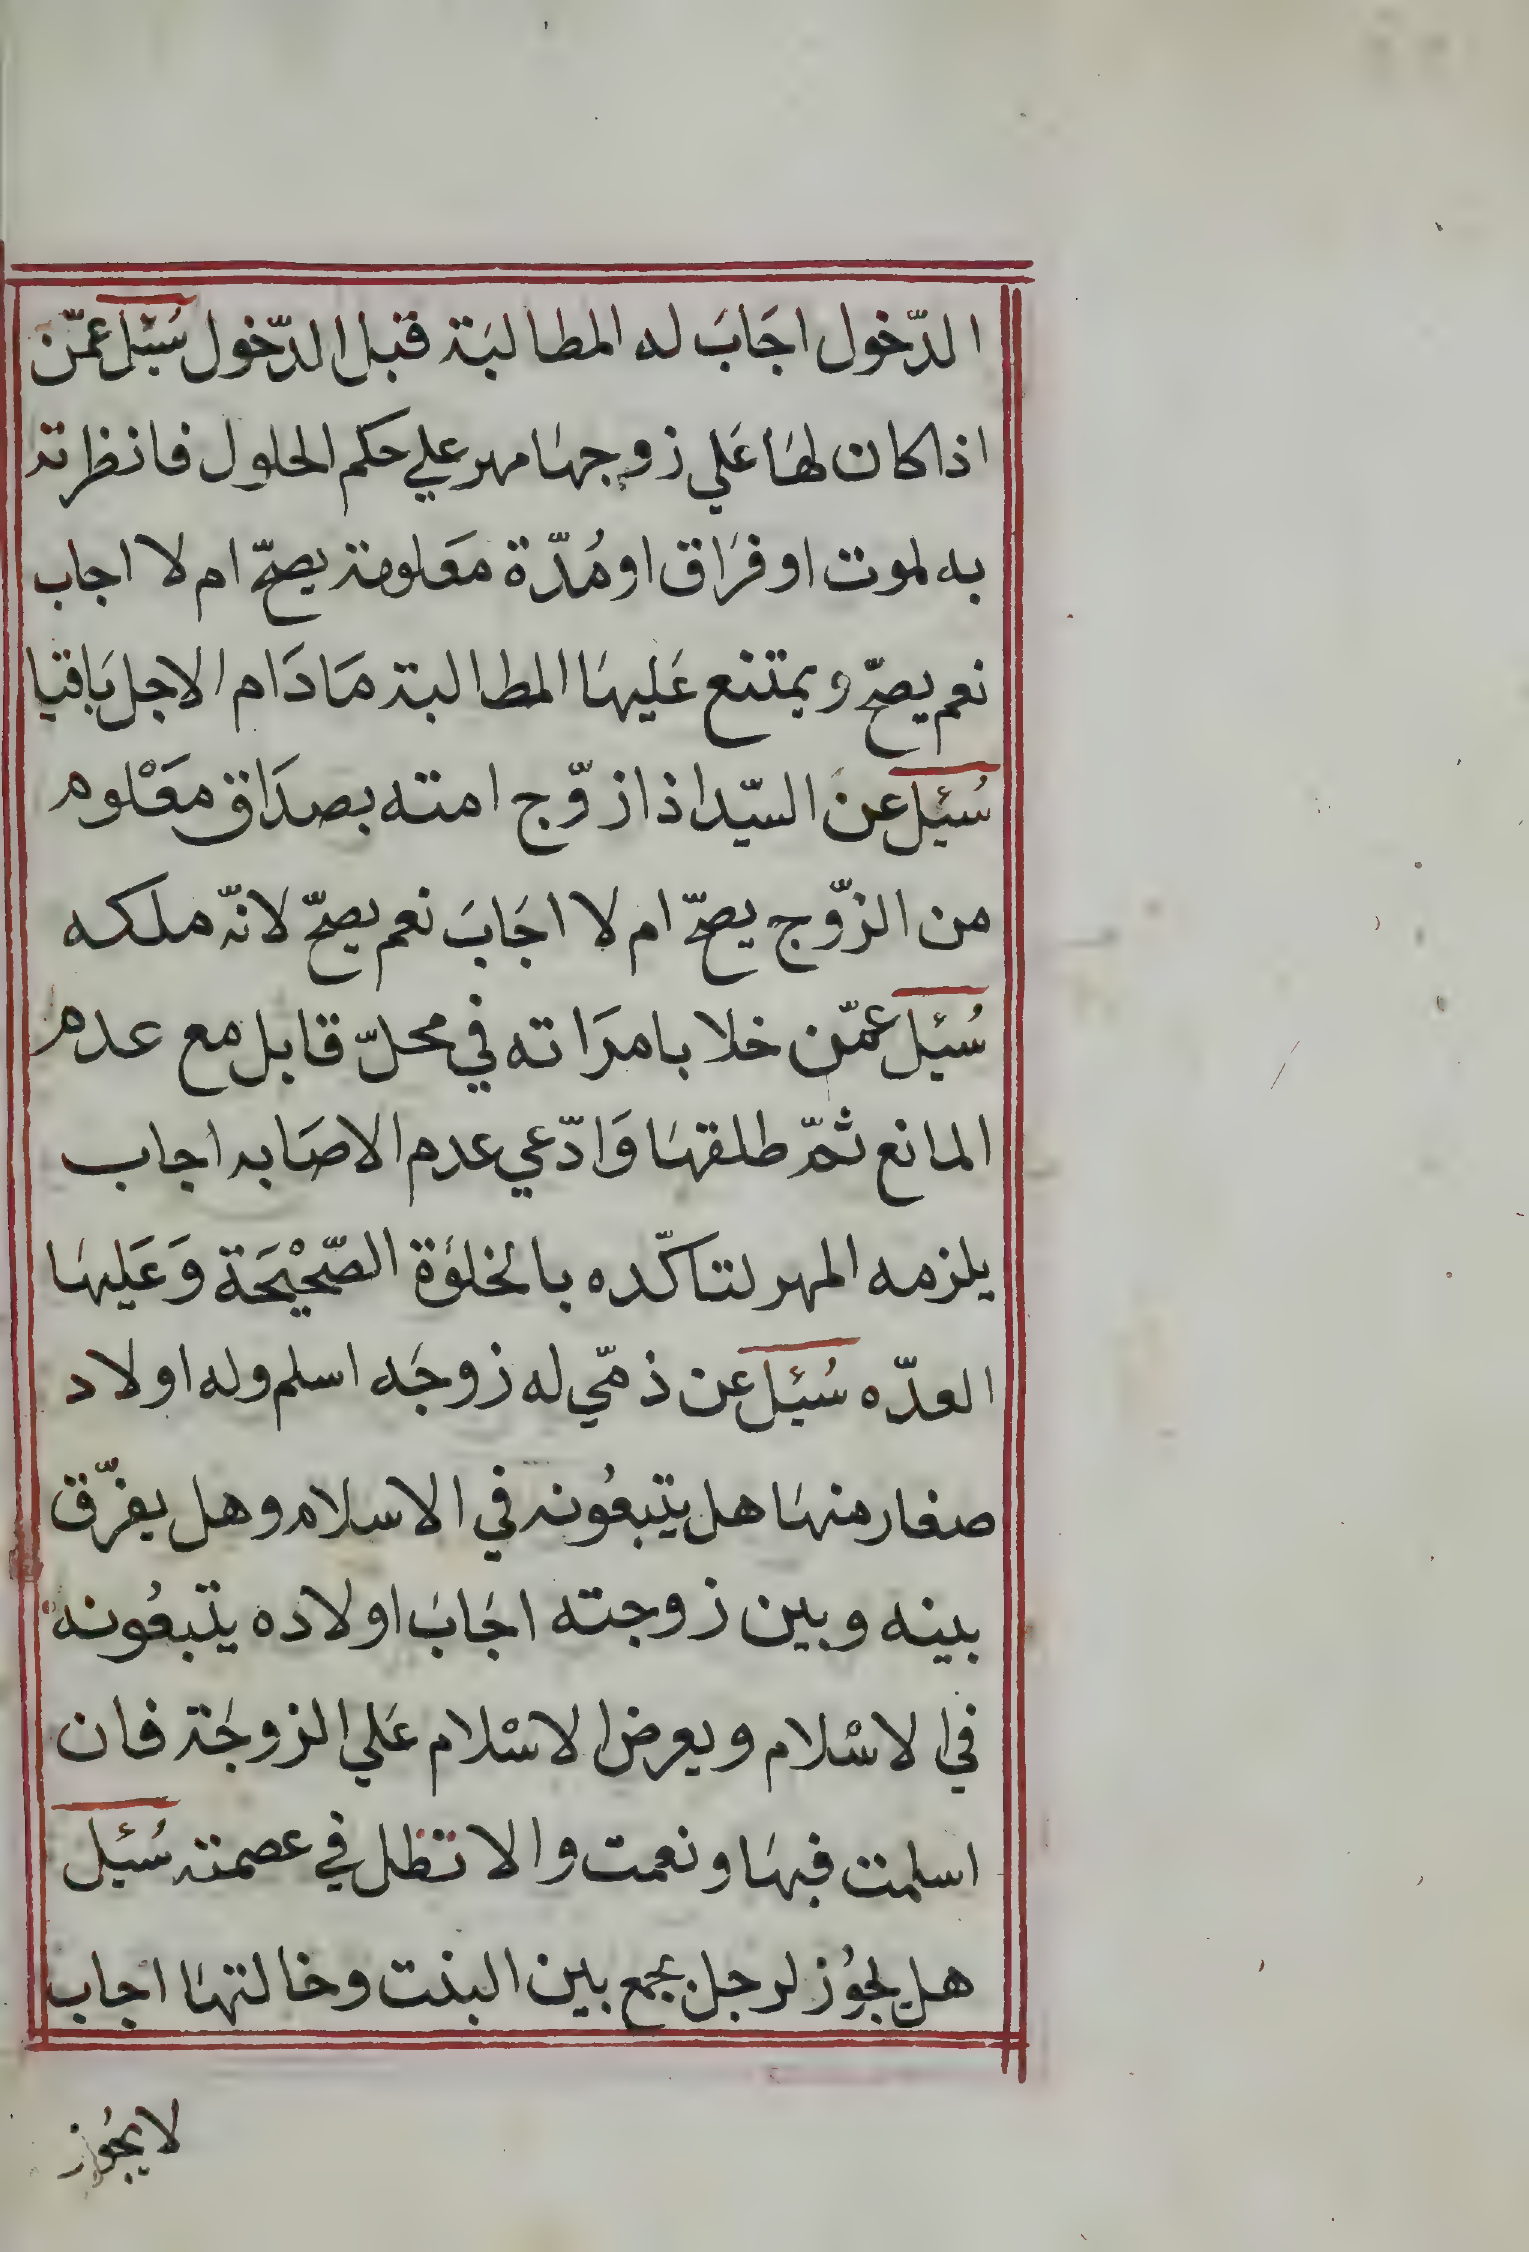 الدّخول اجَابَ له المطالبَة قبل الدّخول سُئِل عمّن
اذا كان لهَا عَلي زوجهَا مهر علي حكم الحلول فانظرته
به لموت او فرَاق او مُدّة مَعَلومة يصحّ ام لا اجاب
نعم يصحّ ويمتنع عَليهَا المطالبة مَادَام الاجل بَاقيا
سُئِل عن السّيد اذا زوّج امته بصدَاق معَلْوم
من الزّوج يصحّ ام لا اجَابَ نعم يصحّ لانّه ملكه
سُئِل عمّن خلا بامرَاته في محلّ قابل مع عدم
المانع ثمّ طلقهَا وَادّعي عدم الاصَابه اجاب
يلزمه المهر لتاكّده بالخلوُة الصّحيْحَة وَعَليهَا
العدّه سُئِل عن ذمّي له زوجَه اسلم وله اولاد
صغار منهَا هل يتبعُونه في الاسلام وهل يفرّق
بينه وبين زوجته اجَابَ اولاده يتبعُونه
في الاسْلام ويعرض الاسْلام عَلي الزوجَة فان
اسلمت فبهَا ونعمت والا تظل في عصمته سُئِل
هل يجوُز لرجل يجمع بين البنت وخالتهَا اجاب
لا يجوُز